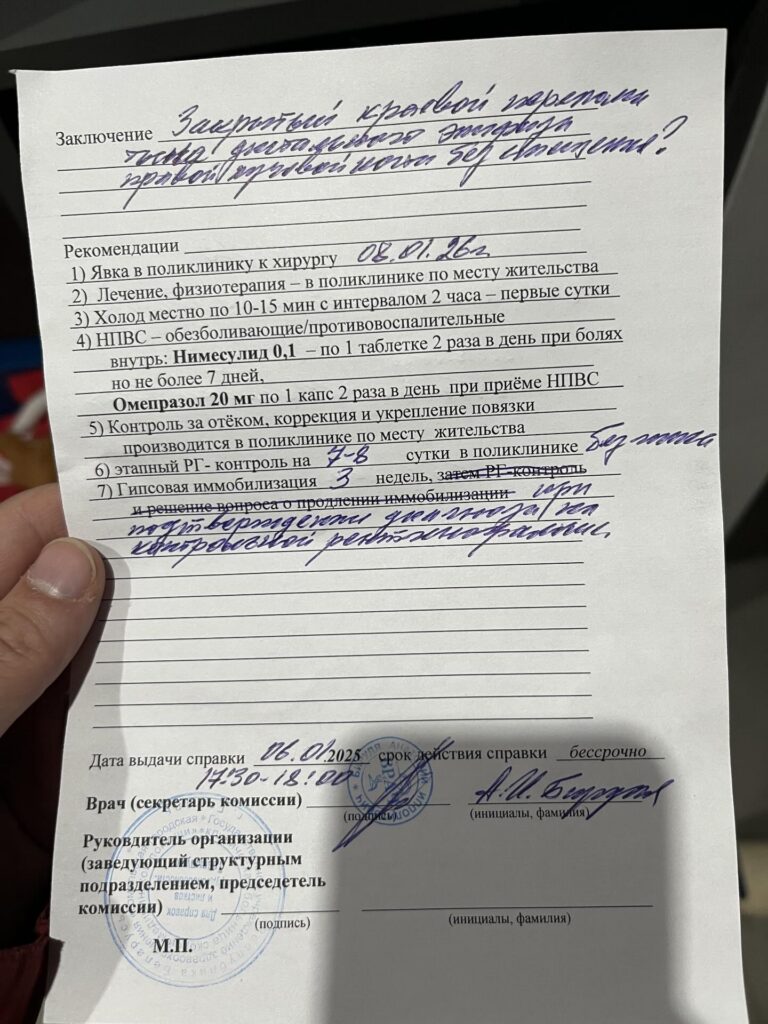 Заключение Закрытый краевой перелом
дистального эпифиза
правой лучевой кости без смещения?
Рекомендации
1) Явка в поликлинику к хирургу 08.01.26г.
2) Лечение, физиотерапия – в поликлинике по месту жительства
3) Холод местно по 10-15 мин с интервалом 2 часа – первые сутки
4) НПВС – обезболивающие/противовоспалительные
внутрь: Нимесулид 0,1 – по 1 таблетке 2 раза в день при болях
но не более 7 дней,
Омепразол 20 мг по 1 капс 2 раза в день при приёме НПВС
5) Контроль за отёком, коррекция и укрепление повязки
производится в поликлинике по месту жительства
6) этапный РГ- контроль на 7-8 сутки в поликлинике без
7) Гипсовая иммобилизация 3 недель, затем РГ-контроль
и решение вопроса о продлении иммобилизации при
подтверждении диагноза на
контрольной
Дата выдачи справки 06.01.2025 срок действия справки бессрочно
17:30-18:00
Врач (секретарь комиссии)
(подпись) (инициалы, фамилия)
Руководитель организации
(заведующий структурным
подразделением, председетель
комиссии)
(подпись) (инициалы, фамилия)
М.П.
Для справок
и листков